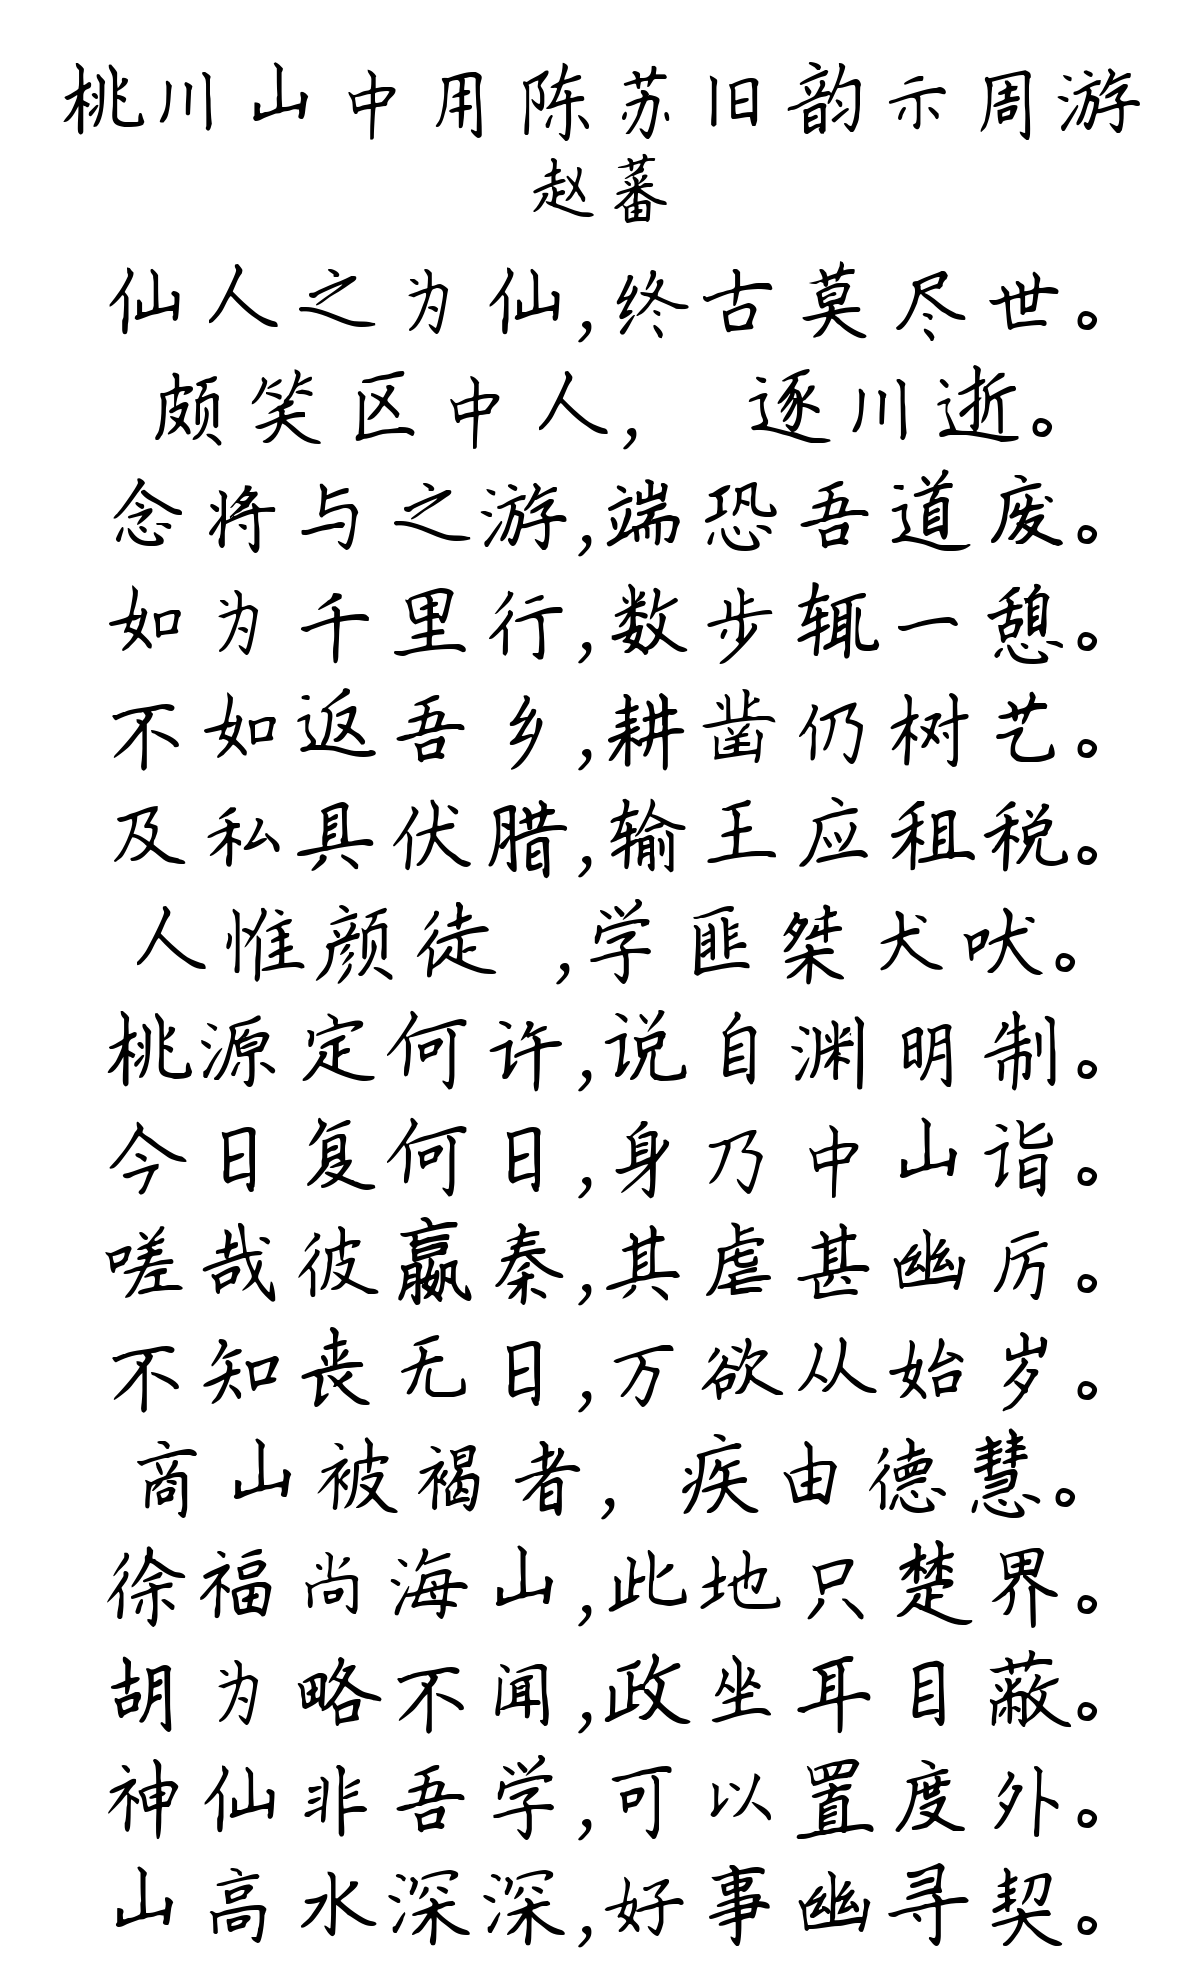 桃川山中用陈苏旧韵示周游
赵蕃
仙人之为仙,终古莫尽世。
颇笑区中人, 逐川逝。
念将与之游,端恐吾道废。
如为千里行,数步辄一憩。
不如返吾乡,耕凿仍树艺。
及私具伏腊,输王应租税。
人惟颜徒 ,学匪桀犬吠。
桃源定何许,说自渊明制。
今日复何日,身乃中山诣。
嗟哉彼嬴秦,其虐甚幽厉。
不知丧无日,万欲从始岁。
商山被褐者, 疾由德慧。
徐福尚海山,此地只楚界。
胡为略不闻,政坐耳目蔽。
神仙非吾学,可以置度外。
山高水深深,好事幽寻契。